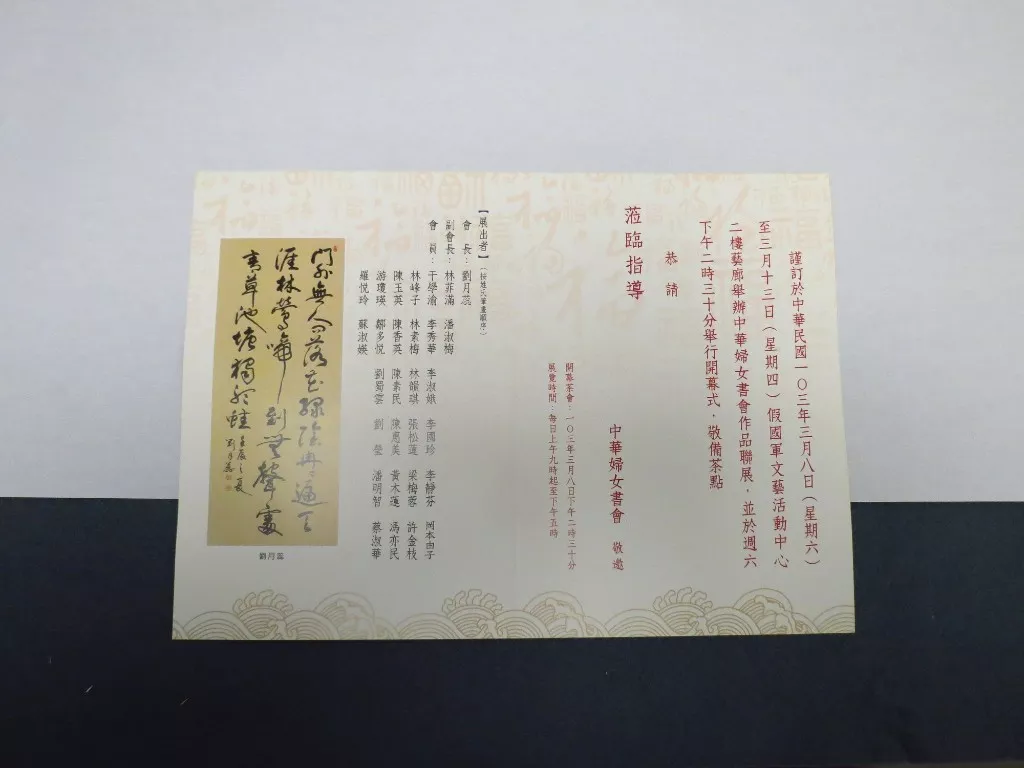 謹訂於中華民國一○三年三月八日（星期六）
至三月十三日（星期四）假國軍文藝活動中心
二樓藝廊舉辦中華婦女書會作品聯展，並於週六
下午二時三十分舉行開幕式，敬備茶點
恭請
蒞臨指導
中華婦女書會 敬邀
開幕茶會：一○三年三月八日下午二時三十分
展覽時間：每日上午九時起至下午五時
【展出者】（按姓氏筆畫順序）
會長：劉月蕊
副會長：林菲滿 潘淑梅
會員：干學渝 李秀華 李淑娥 李國珍 李靜芬 河本由子
林峰子 林素梅 林韻琪 張松蓮 梁梅蓉 許金枝
陳玉英 陳香英 陳素民 陳惠美 黃木蓮 馮亦民
游瓊瑛 鄒多悅 劉蜀雲 劉瑩 潘明智 蔡淑華
羅悅玲 蘇淑媖
門外無人問落花綠陰冉冉遍天
涯林鶯啼到無聲處
青草池塘獨聽蛙 壬辰之夏 劉月蕊
劉月蕊